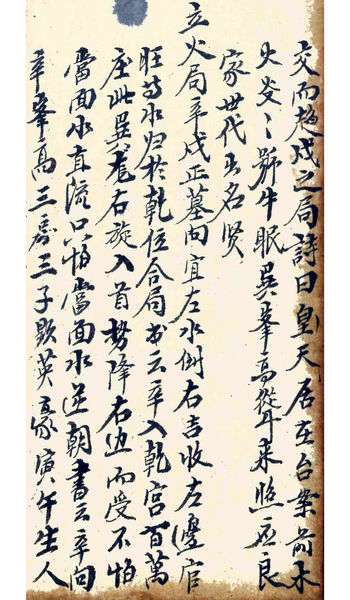 交而趨戌之局詩曰皇天居在台案前木
火炎々號牛眠巽峯高從耳来照良
家世代出名贤
立火局辛戌正墓向宜左水倒右吉收左邊官
旺方水归於乾位合局书云辛入乾宫百萬
庄此巽竜右旋入首势降右边而受不怕
當面水直流只怕當面水逆朝書云辛向
辛峯高三房三子显英豪寅午生人